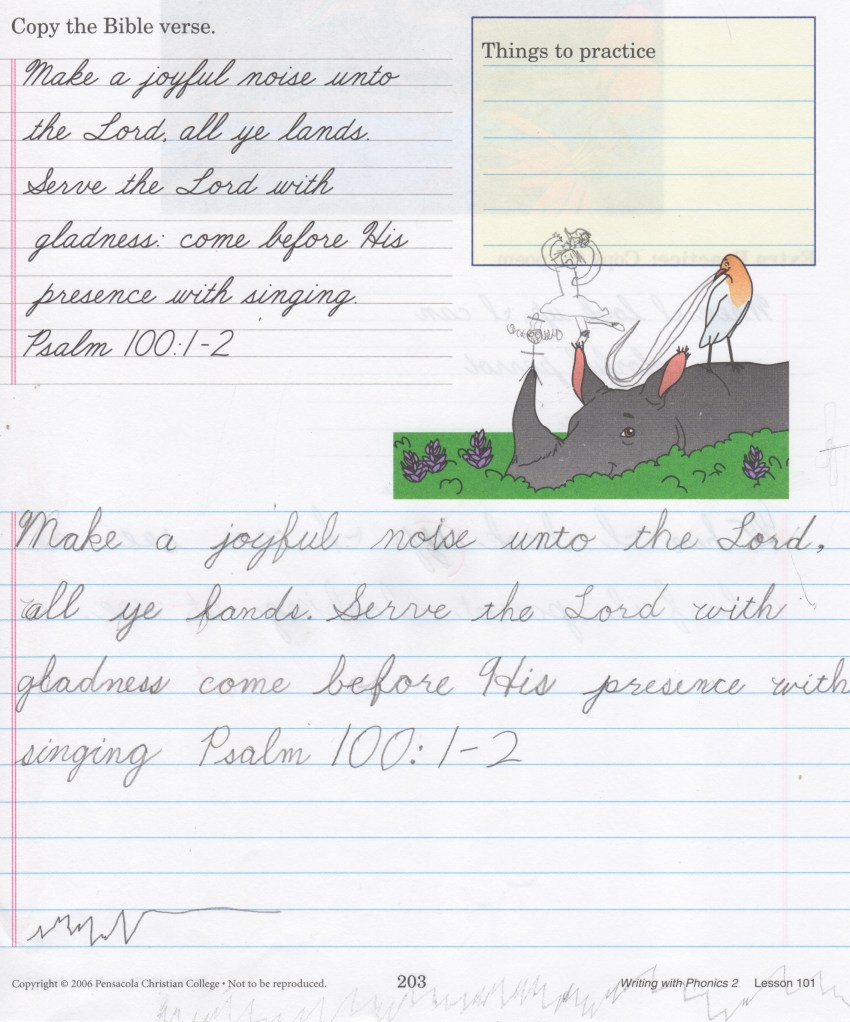 Copy the Bible verse.
Things to practice
Make a joyful noise unto
the Lord, all ye lands.
Serve the Lord with
gladness: come before His
presence with singing.
Psalm 100:1-2
Make a joyful noise unto the Lord,
all ye lands. Serve the Lord with
gladness come before His presence with
singing Psalm 100:1-2
Copyright © 2006 Pensacola Christian College • Not to be reproduced.
203
Writing with Phonics 2 Lesson 101